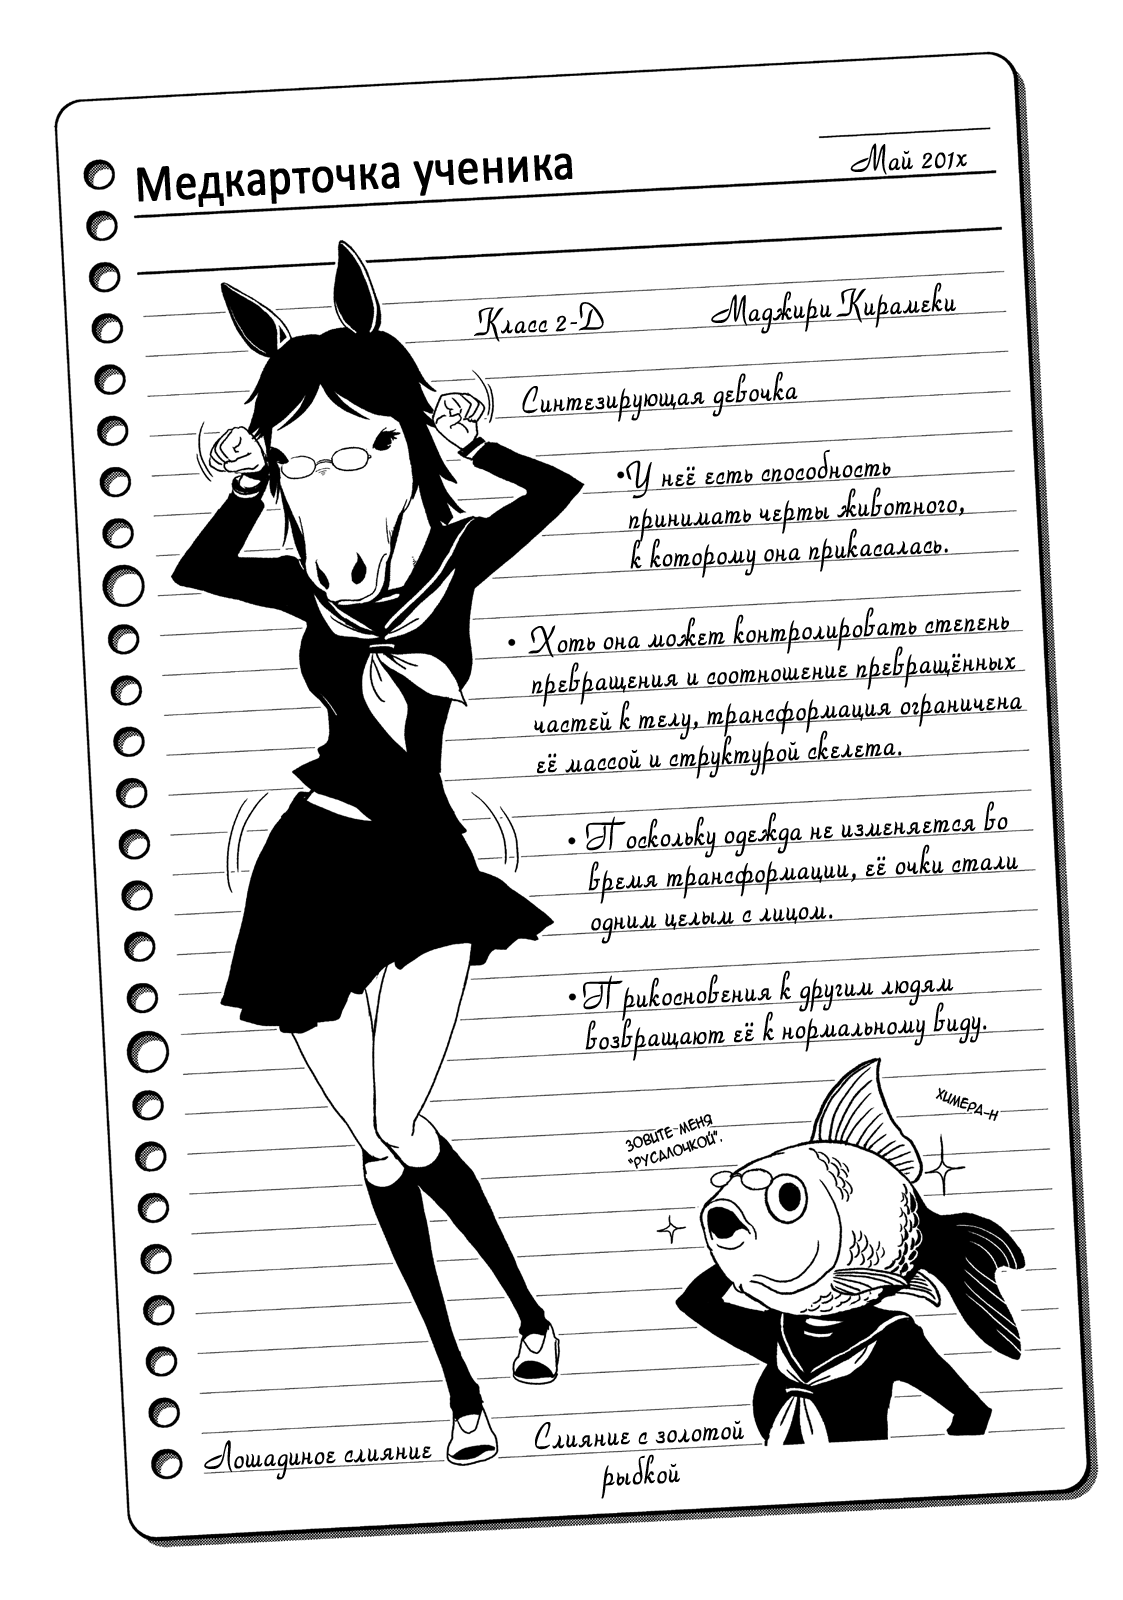 Медкарточка ученика
Май 201x
Класс 2-Д
Маджири Кирамеки
Синтезирующая девочка
•У неё есть способность
принимать черты животного,
к которому она прикасалась.
• Хоть она может контролировать степень
превращения и соотношение превращённых
частей к телу, трансформация ограничена
её массой и структурой скелета.
• Поскольку одежда не изменяется во
время трансформации, её очки стали
одним целым с лицом.
• Прикосновения к другим людям
возвращают её к нормальному виду.
ЗОВИТЕ МЕНЯ
"РУСАЛОЧКОЙ".
ХИМЕРА-Н
Лошадиное слияние
Слияние с золотой
рыбкой